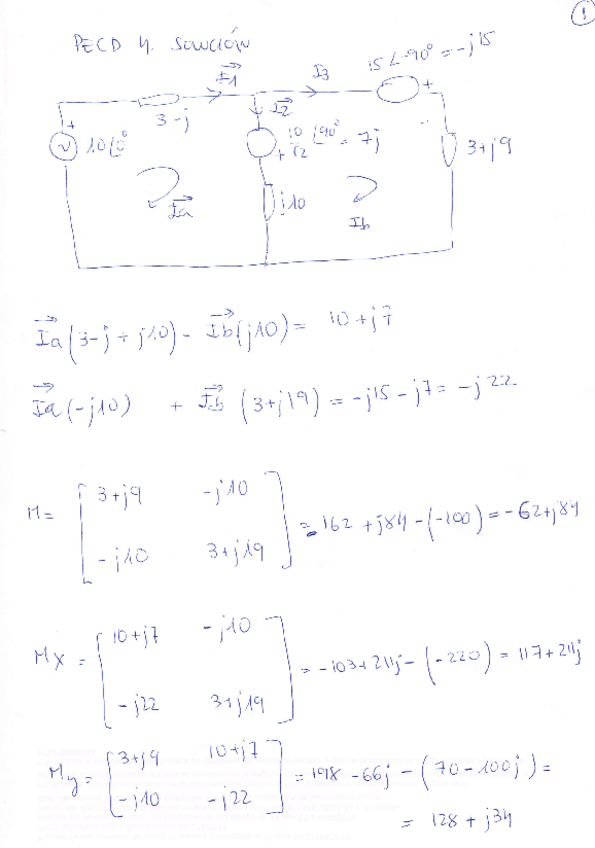 1
PECD 4. SOLUCIÓN
I1
I3
15∠-90° = -j15
+
3-j
I2
+
10∠0°
10/√2 ∠90° = 7j
+
3+j9
j10
Ia
Ib
Ia (3-j+j10) - Ib (j10) = 10+j7
Ia (-j10) + Ib (3+j19) = -j15-j7 = -j22
M = [3+j9 -j10
-j10 3+j19] = -162 +j84 -(-100) = -62+j84
Mx = [10+j7 -j10
-j22 3+j19] = -103+211j-(-220) = 117+211j
My = [3+j9 10+j7
-j10 -j22] = 198 -66j - (70-100j) =
= 128 + j34